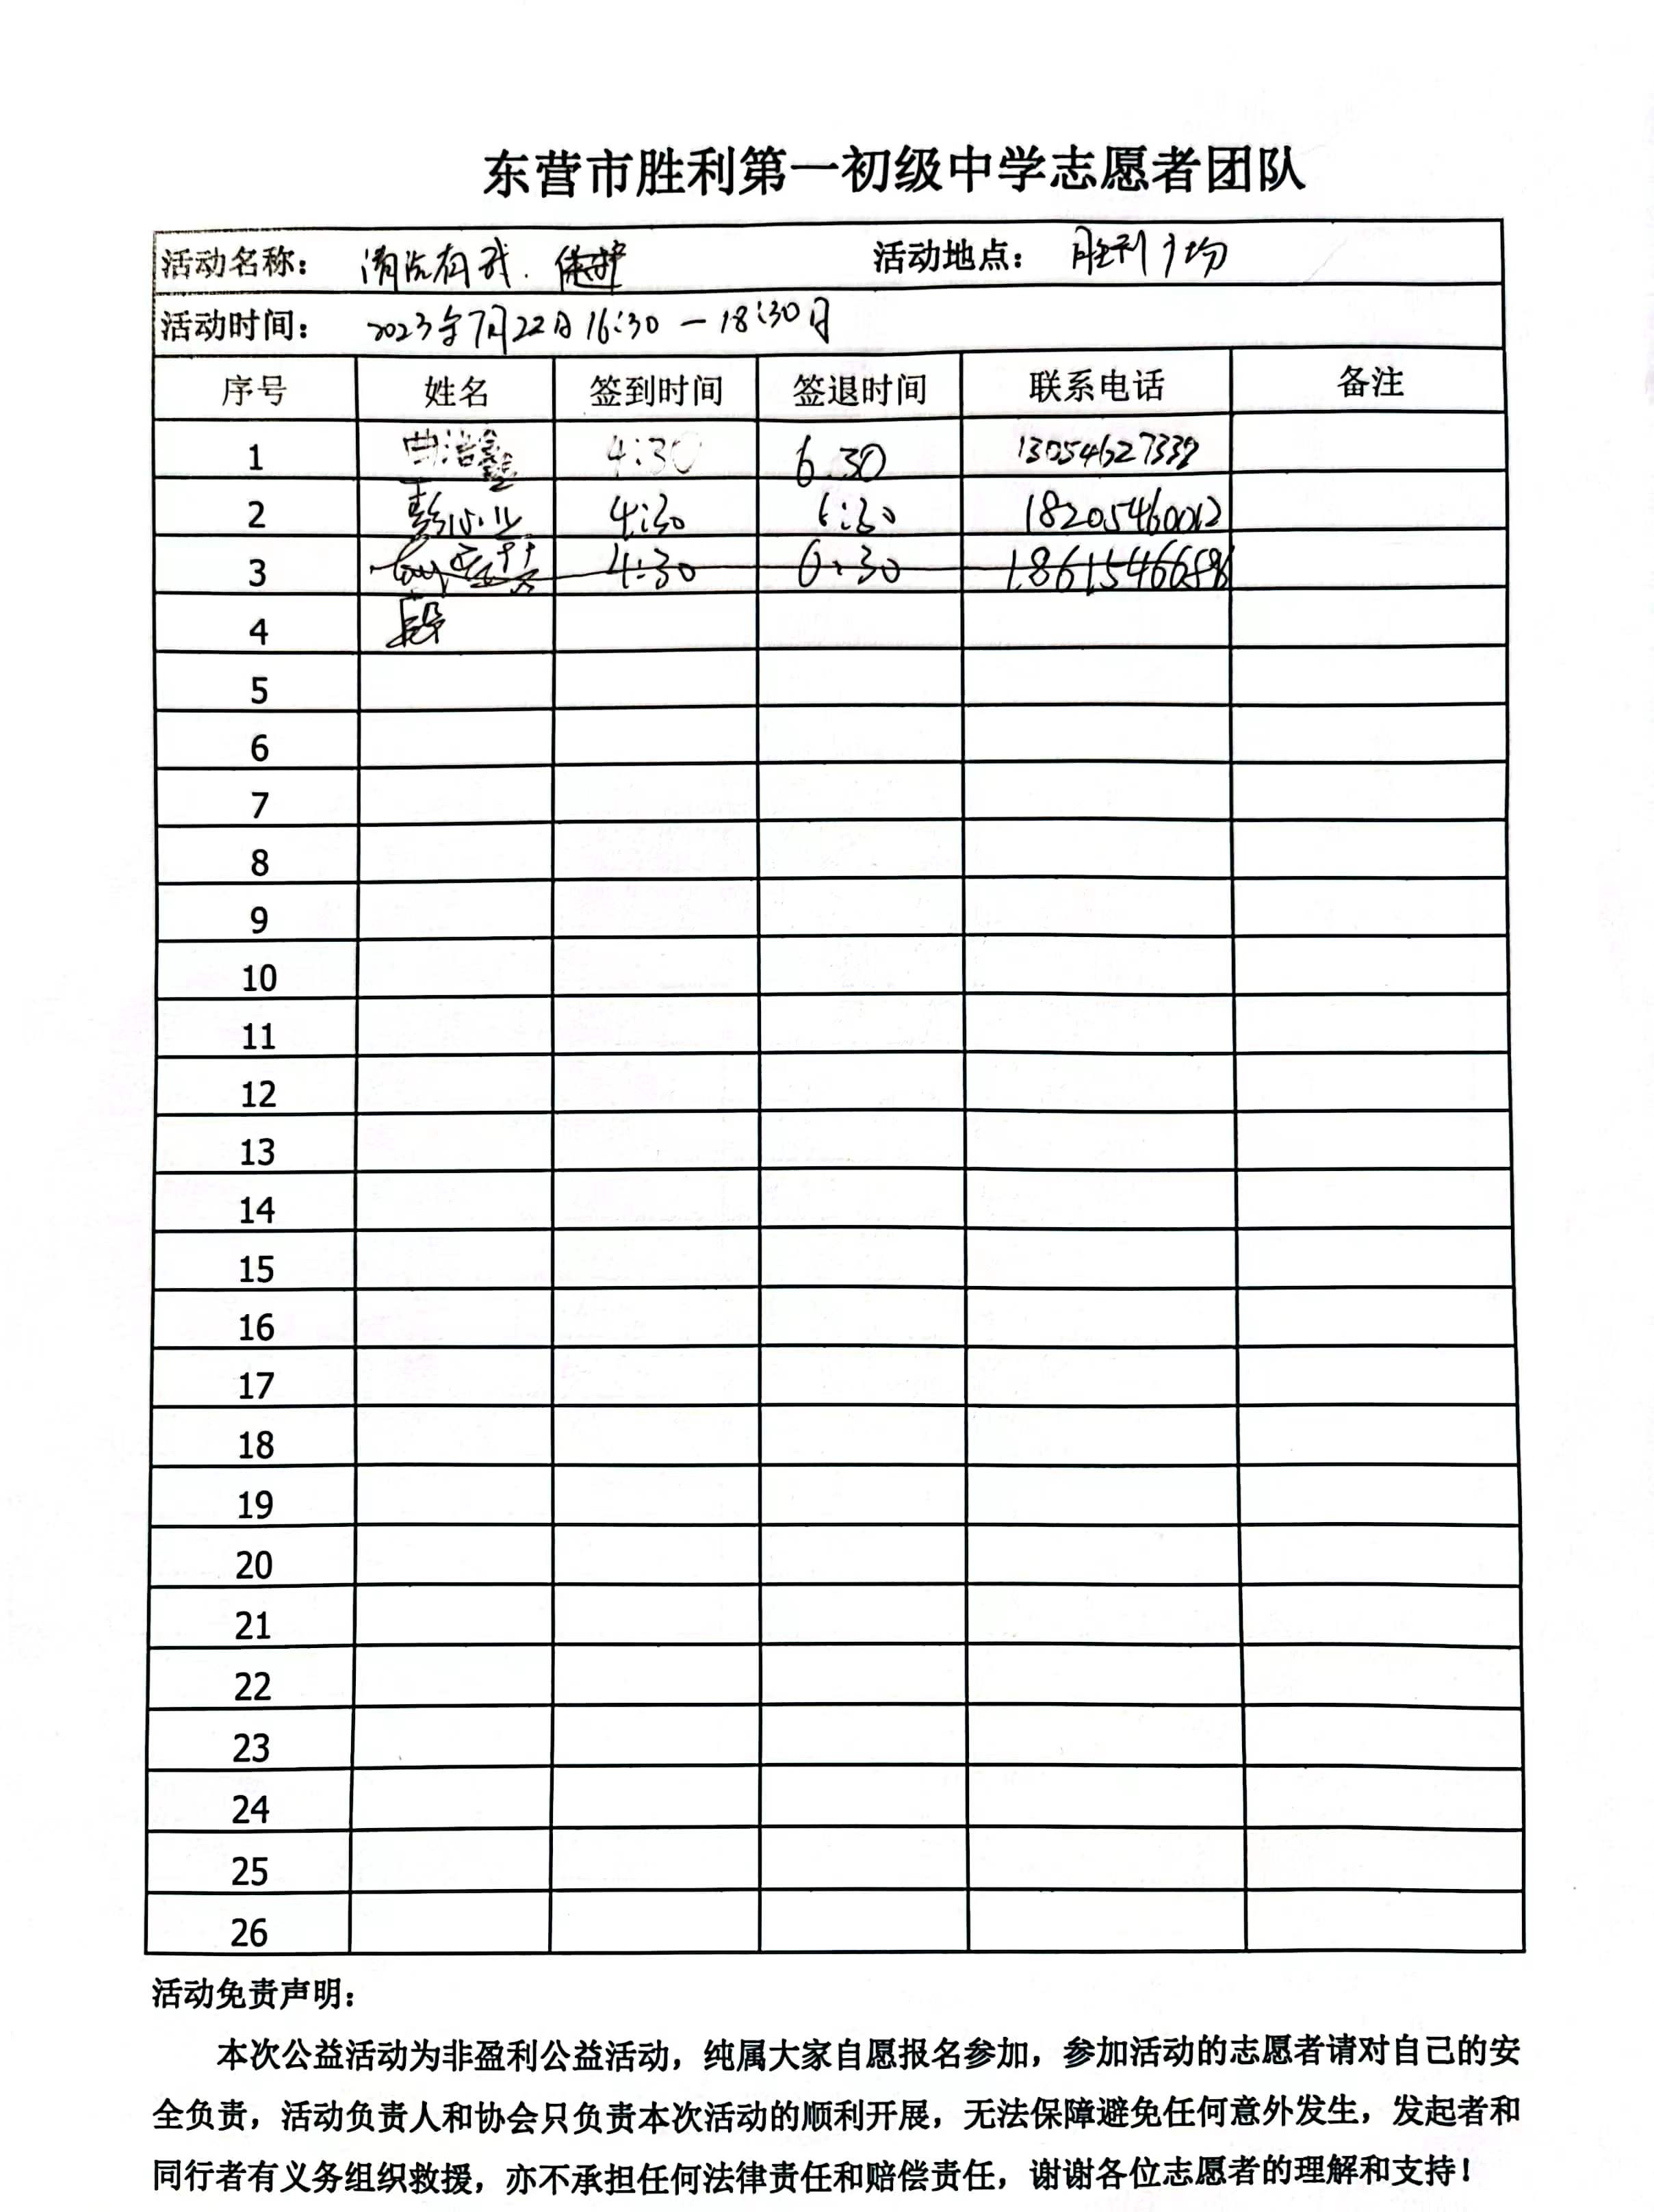 东营市胜利第一初级中学志愿者团队
活动名称： 清洁有我. 活动地点： 胜利广场
活动时间： 2023年7月22日16:30－18:30日
序号 姓名 签到时间 签退时间 联系电话 备注
1 曲浩鑫 4:30 6 30
2 4:30 6:30 18205460012
3 4:30 6:30
4 段
5
6
7
8
9
10
11
12
13
14
15
16
17
18
19
20
21
22
23
24
25
26
活动免责声明：
本次公益活动为非盈利公益活动，纯属大家自愿报名参加，参加活动的志愿者请对自己的安
全负责，活动负责人和协会只负责本次活动的顺利开展，无法保障避免任何意外发生，发起者和
同行者有义务组织救援，亦不承担任何法律责任和赔偿责任，谢谢各位志愿者的理解和支持！